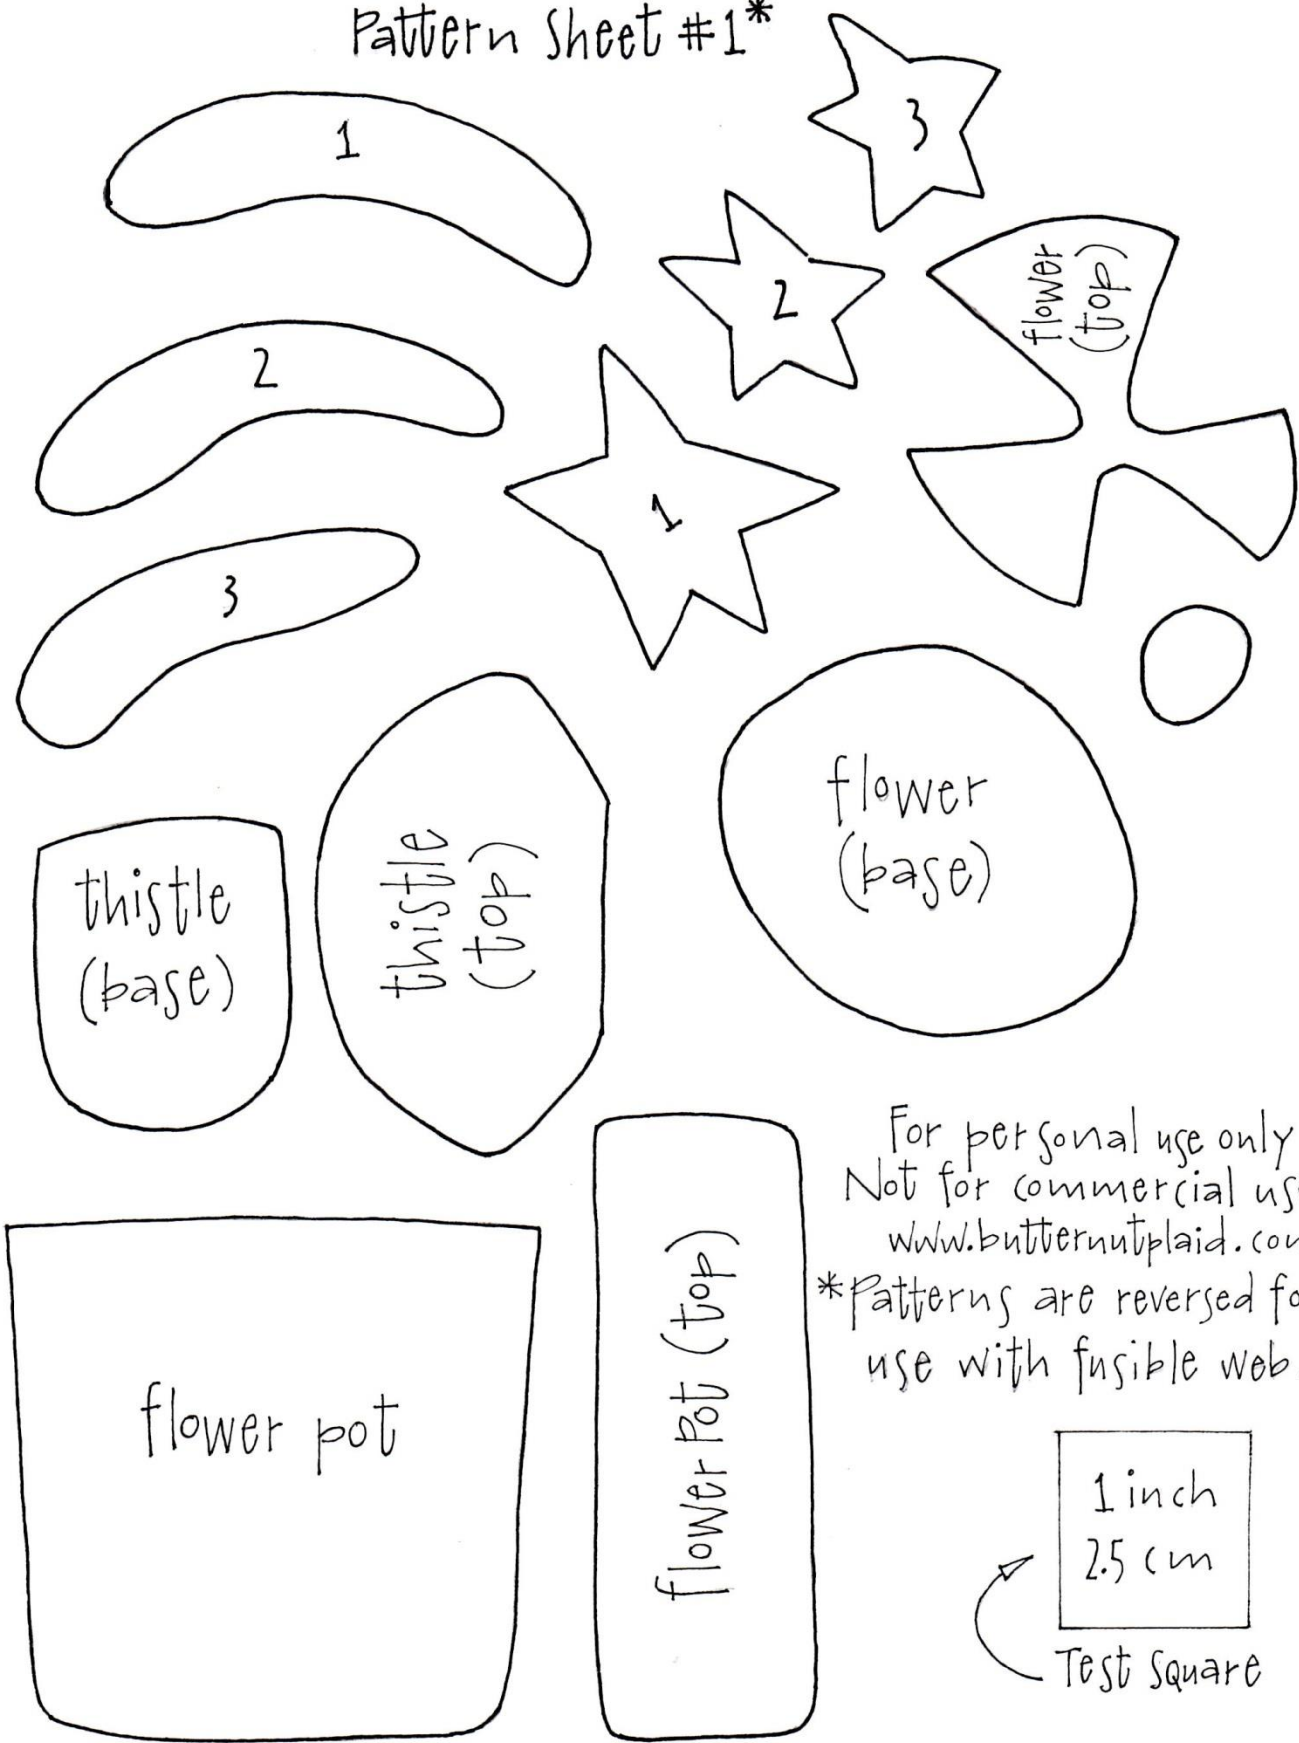 Pattern Sheet #1*
1
3
2
flower
(top)
2
1
3
flower
(base)
thistle
(top)
thistle
(base)
For personal use only
Not for commercial us
www.butternutplaid.com
*Patterns are reversed fo
use with fusible web
flower pot
flower Pot (top)
1 inch
2.5 cm
Test Square